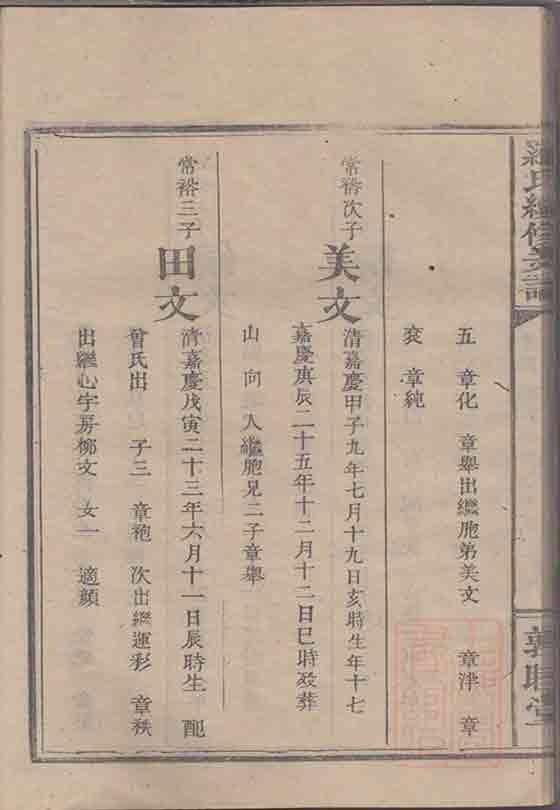 羅氏續修支譜
敦睦堂
五 章化 章舉出繼胞弟美文 章津 章
袞 章純
常裕次子
美文
清嘉慶甲子九年七月十九日亥時生年十七
嘉慶庚辰二十五年十二月十二日巳時歿葬
山 向 入繼胞兄二子章舉
常裕三子
田文
清嘉慶戊寅二十三年六月十一日辰時生 配
曾氏出 子三 章袍 次出繼運彩 章秩
出繼心字房柳文 女一 適顏